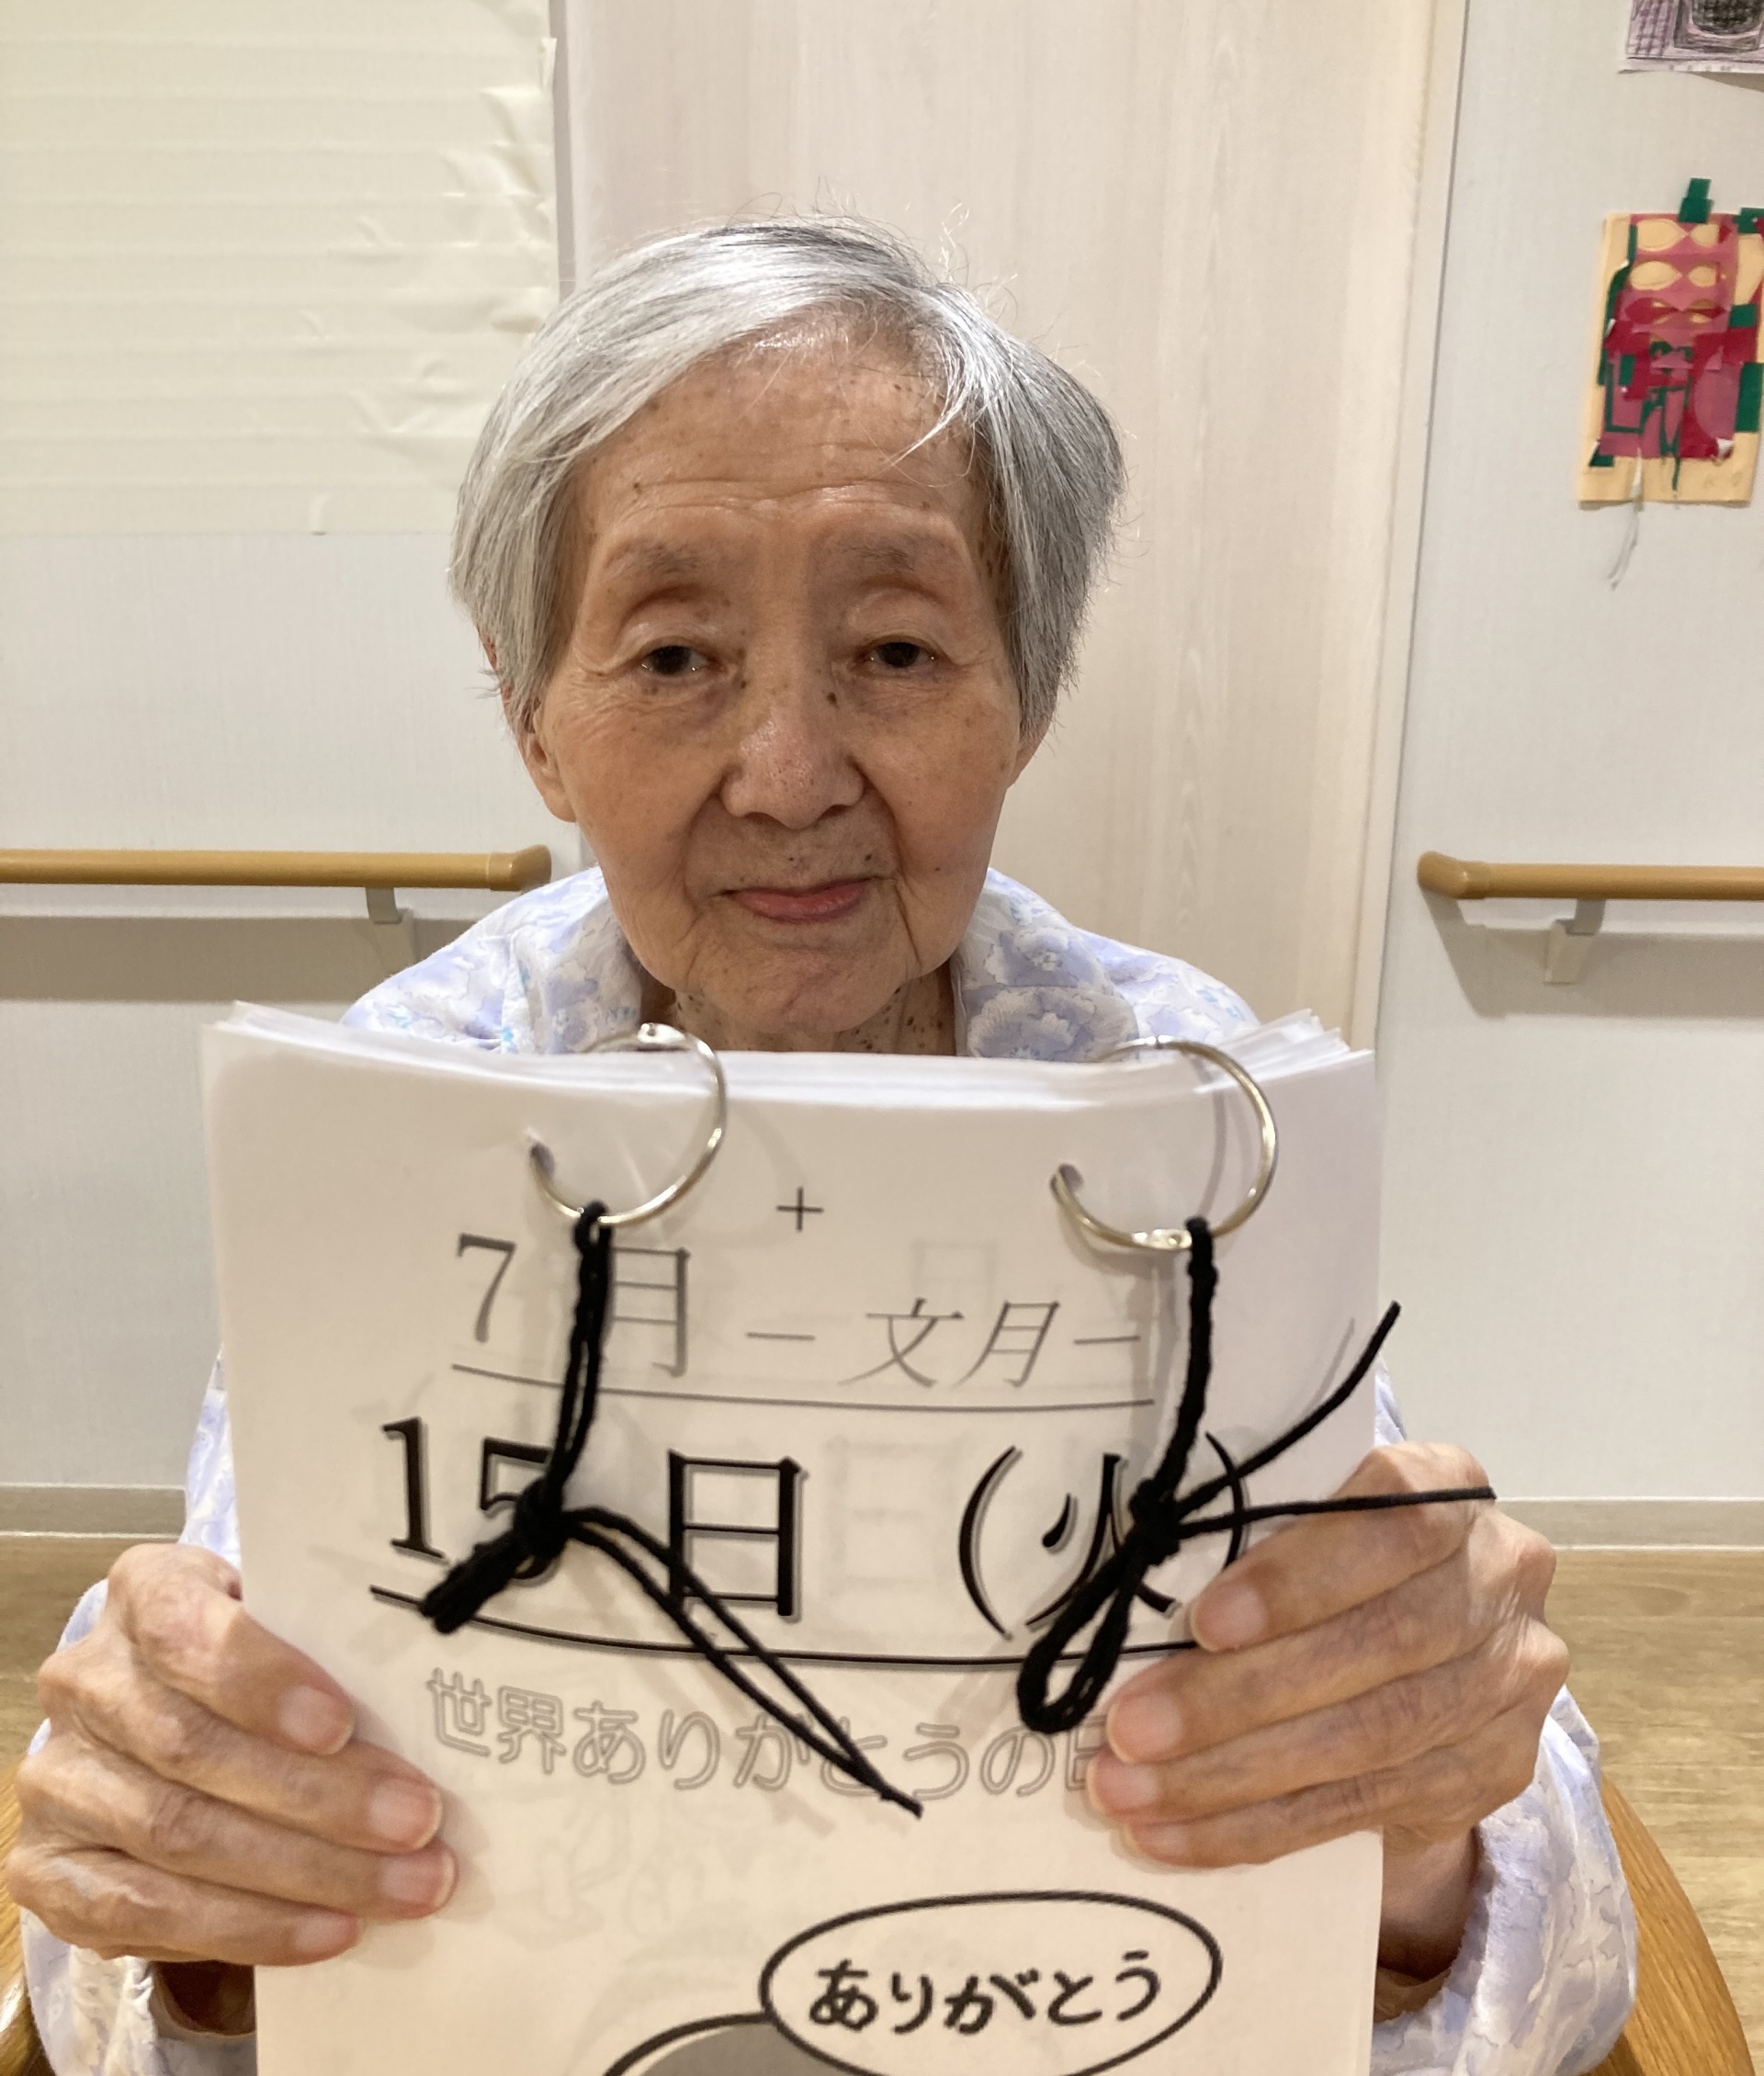 7月 ー文月ー
15日(火)
世界ありがとうの日
ありがとう